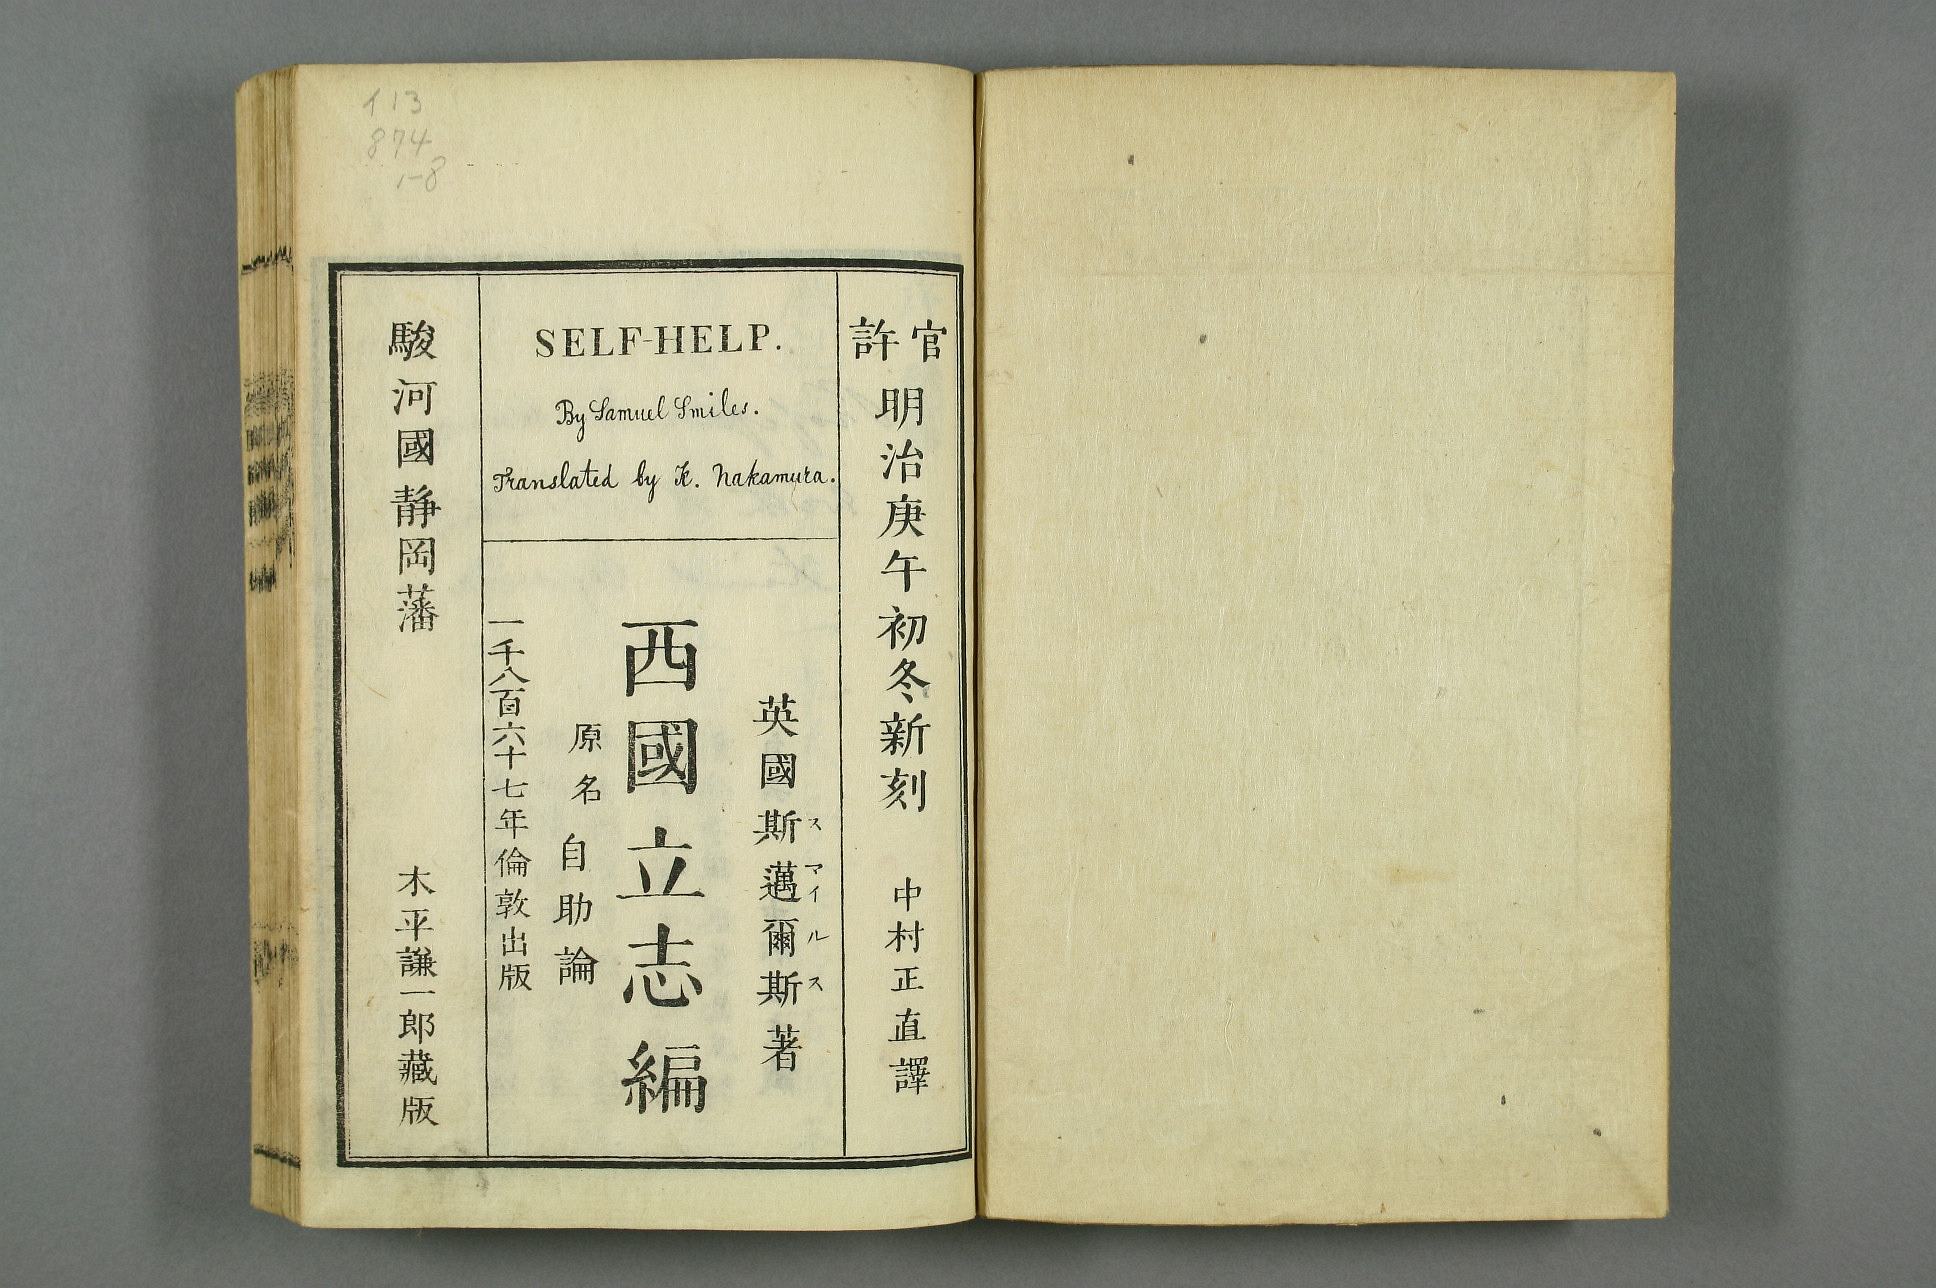 113
874
1-8
官許
明治庚午初冬新刻 中村正直譯
SELF-HELP.
By Samuel Smiles.
Translated by K. Nakamura.
英國斯邁爾斯著
スマイルス
西國立志編
原名自助論
一千八百六十七年倫敦出版
駿河國靜岡藩 木平謙一郎藏版